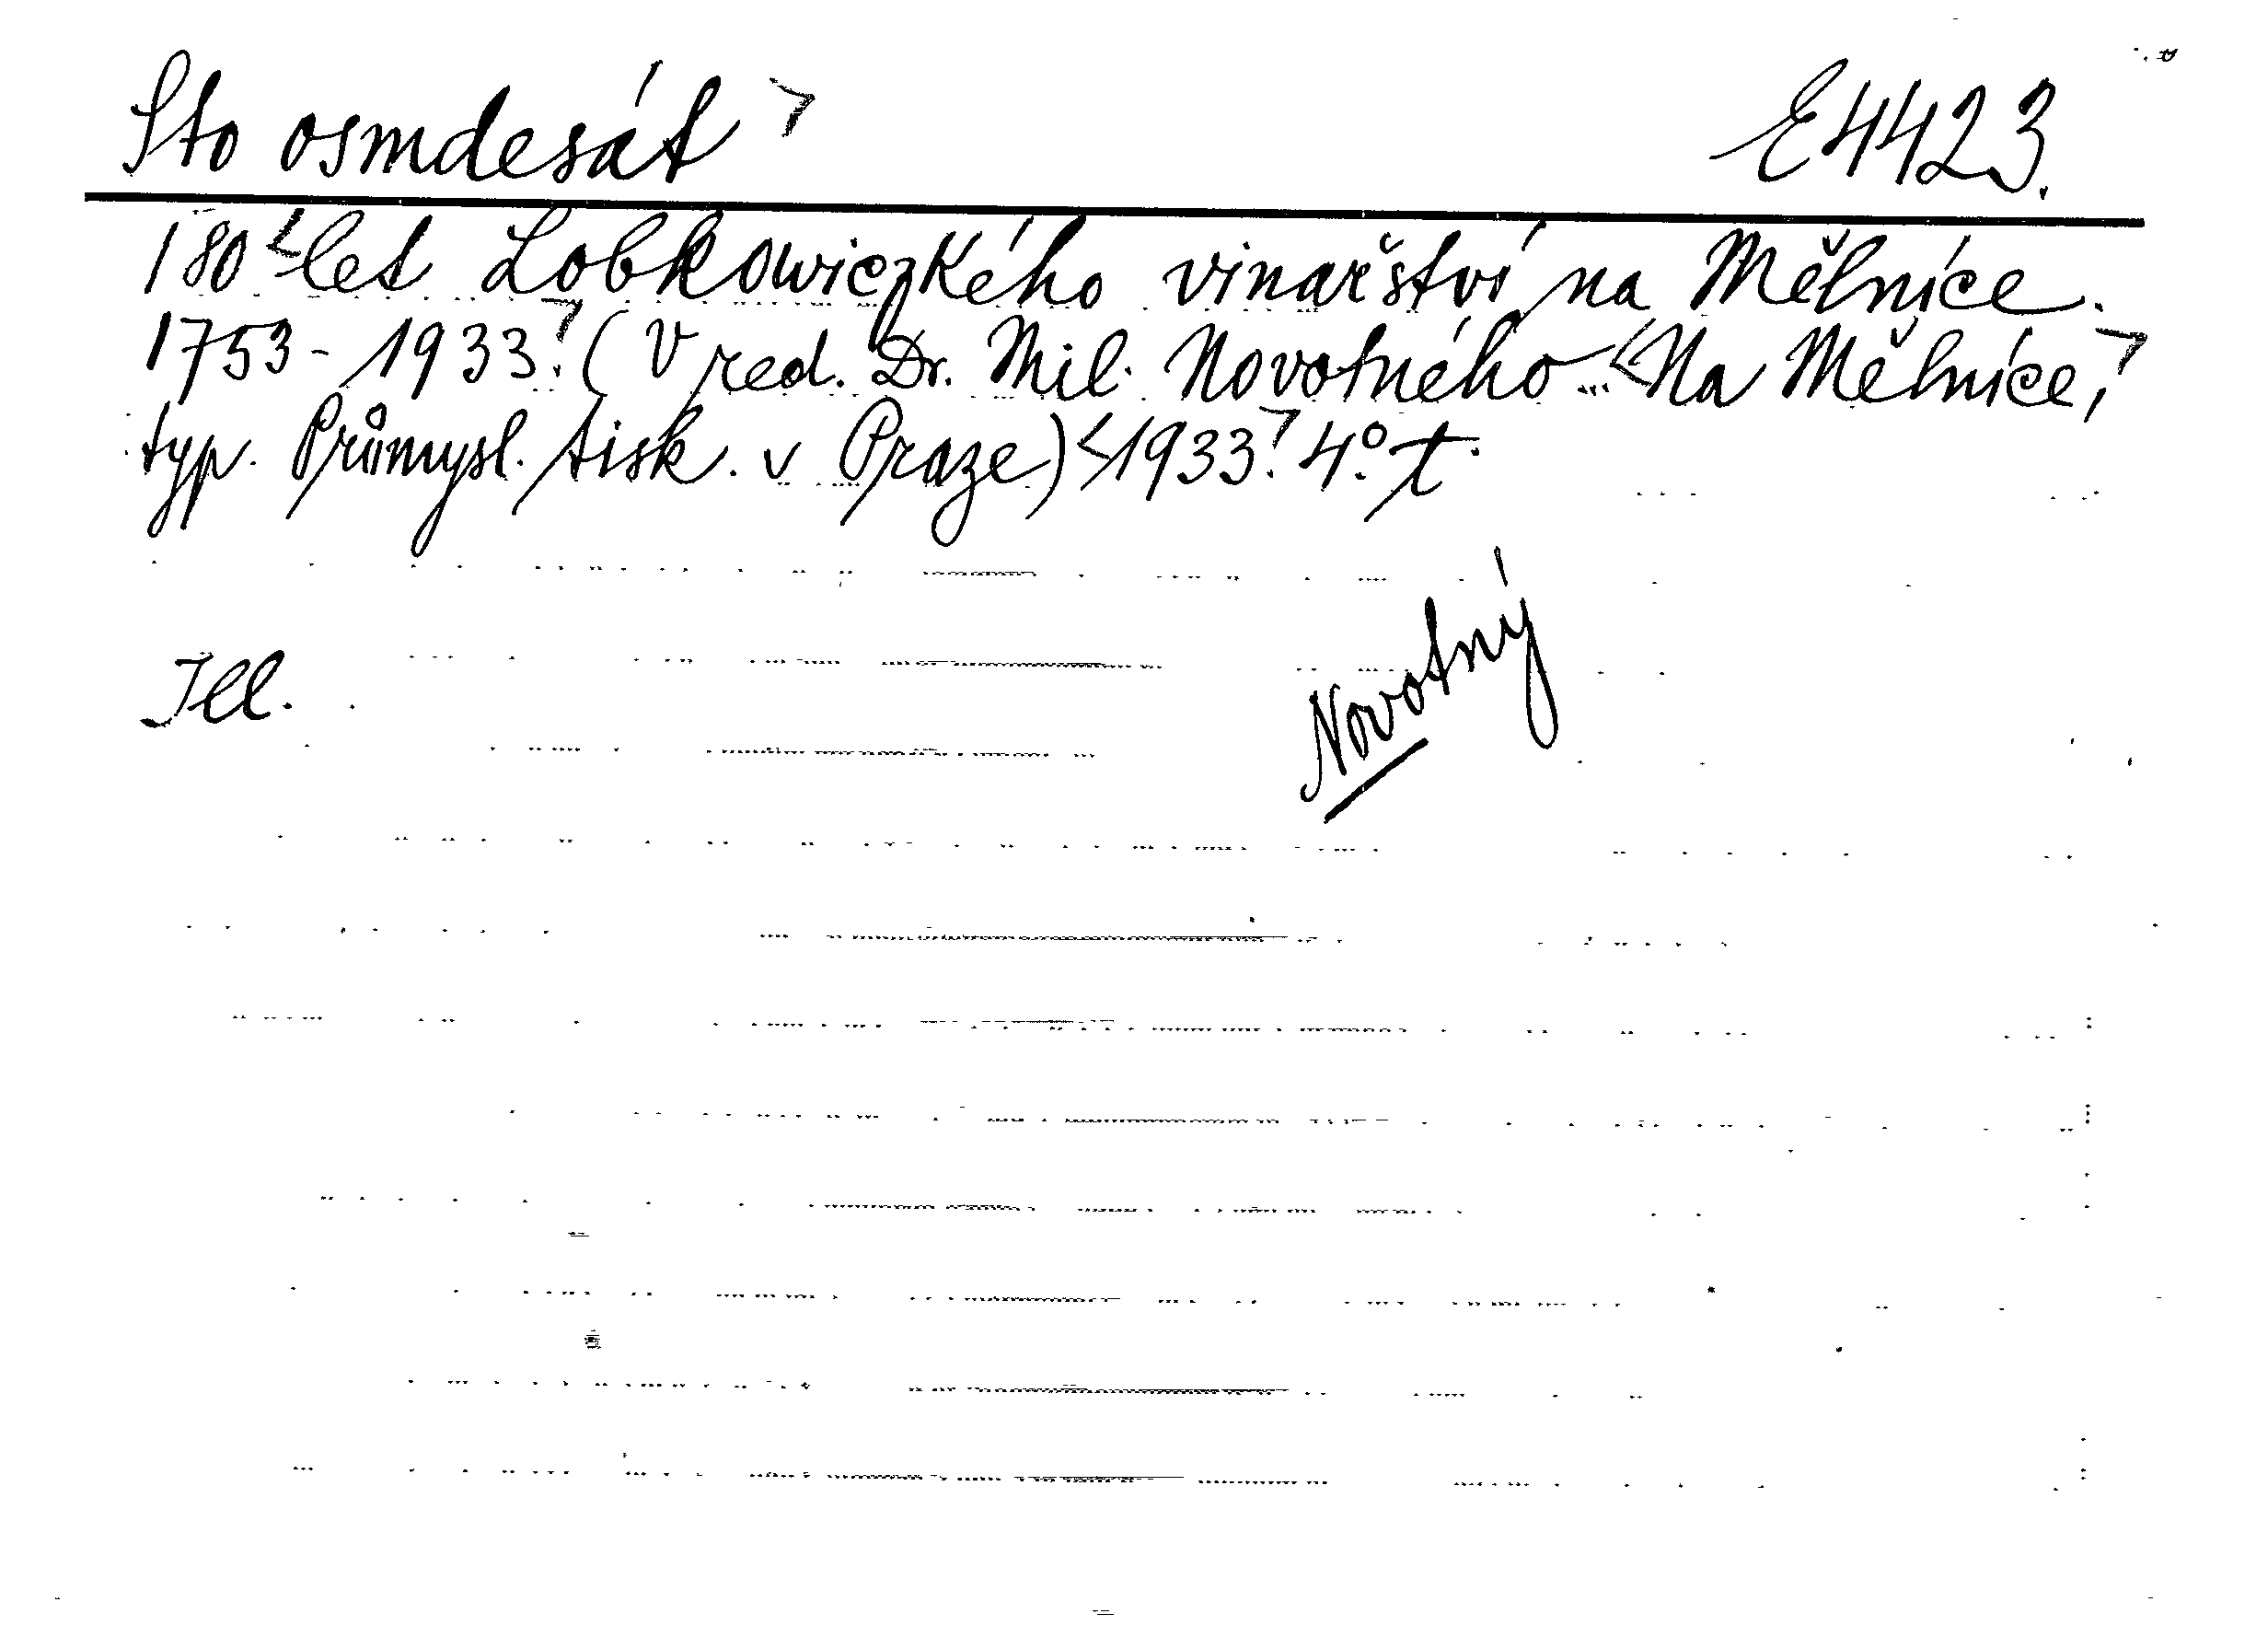 Sto osmdesát E4423.
180 let Lobkowiczkého vinařství na Mělníce.
1753-1933. (V red. Dr. Mil. Novotného... Na Mělníce,
typ. Průmysl. tisk. v Praze) 1933. 4° t.
Ill.
Novotný